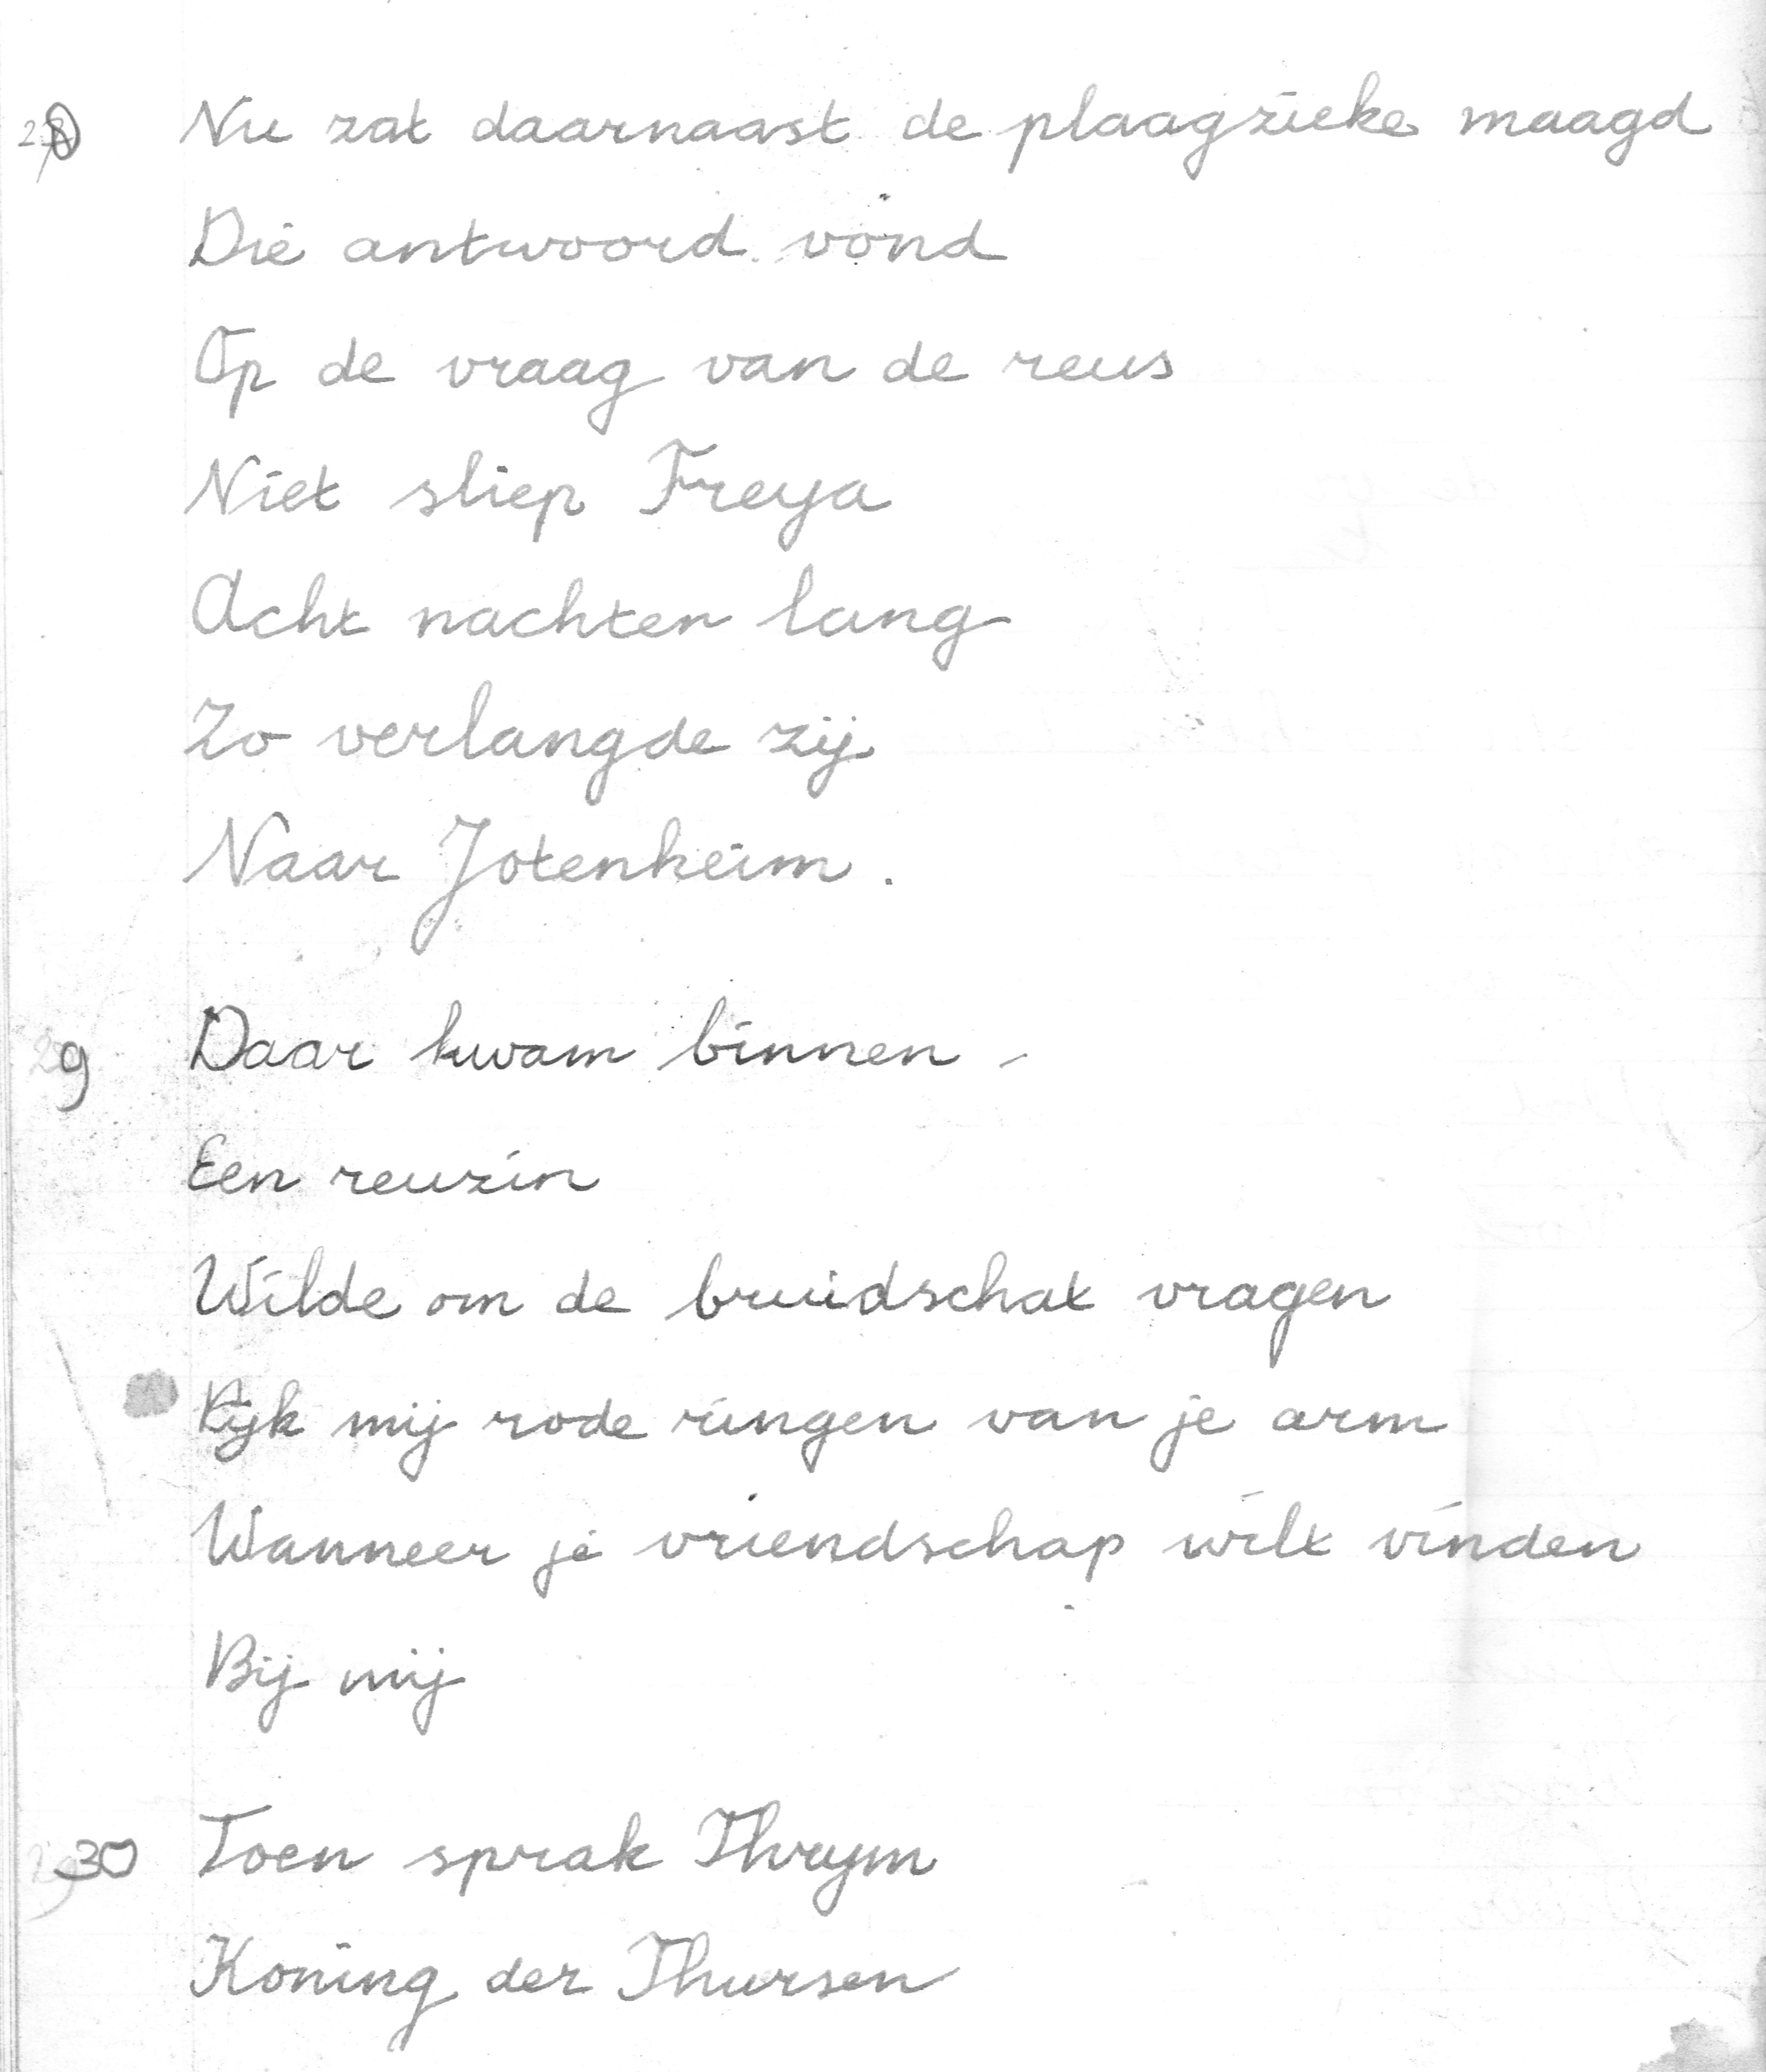 28 Nu zat daarnaast de plaagzieke maagd
Die antwoord vond
Op de vraag van de reus
Niet sliep Freya
Acht nachten lang
Zo verlangde zij
Naar Jotenheim.
29 Daar kwam binnen -
Een reuzin
Wilde om de bruidschat vragen
Kijk mij rode ringen van je arm
Wanneer je vriendschap wilt vinden
Bij mij
30 Toen sprak Thrym
Koning der Thursen